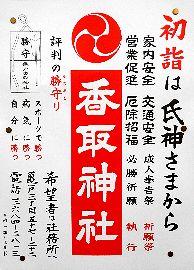 初詣は氏神さまから
家内安全 交通安全 成人奉告祭 祈願祭
営業促進 厄除招福 必勝祈願 執行
香取神社
評判の勝守り
勝守
スポーツで勝つ
病気に勝つ
自分に勝つ
希望者は社務所
亀戸三丁目五七ー二二
電話